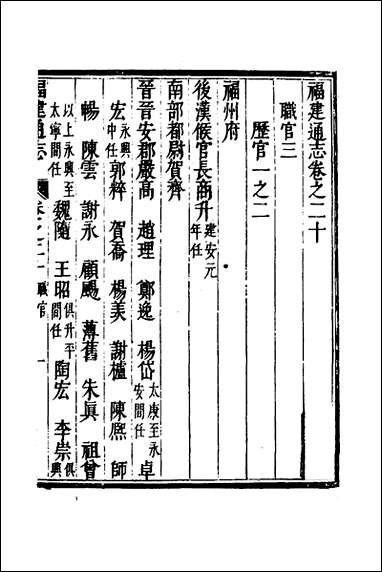 福建通志卷之二十
職官三
歷官一之二
福州府
後漢候官長商升建安元年任
南部都尉賀齊
晉晉安郡嚴高 趙理 鄭逸 楊岱太康至永安間任 卓
宏永興中任 郭粹 賀喬 楊美 謝櫨 陳熈 師
暢 陳雲 謝永 顧颺 薄舊 朱眞 祖曾
以上永興至太寧間任 魏隨 王昭俱升平間任 陶宏 李崇俱興
福建通志 職官 一